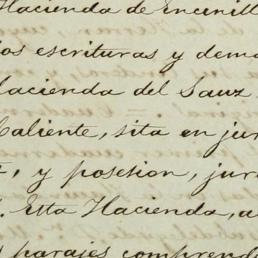 Hacienda de Encinill
ios escrituras y dema
Hacienda del Sauz
Caliente, sita en jur
, y posesion, jur
. Esta Hacienda, a
parajes comprend